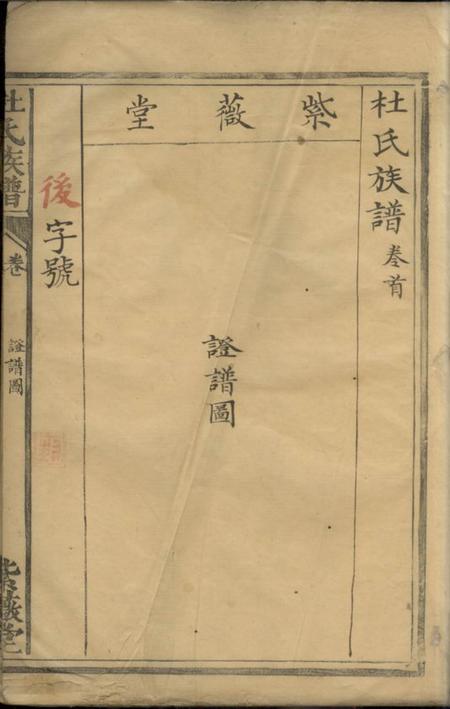 杜氏族譜 卷首
紫薇堂
證譜圖
後字號
杜氏族譜
卷
證譜圖
紫薇堂